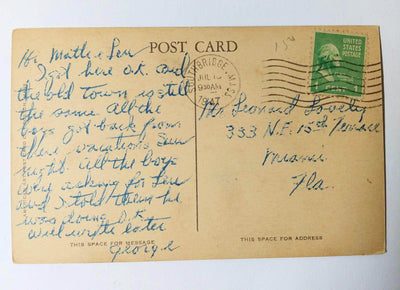 Hi Mattie & Leu
I got here O.K. and
the old town is still
the same. All the
boys got back from
there vacations Sun
night. All the boys
were asking for Leu
and I told them he
was doing O.K.
will write later
George
THIS SPACE FOR MESSAGE
POST CARD
BRIDGE, MASS
JUL 15
9 30 AM
1947
15¢
UNITED STATES
POSTAGE
1
CENT
1
Mr Leonard Lovely
333 N.E. 15th Terrace
Miami
Fla.
THIS SPACE FOR ADDRESS